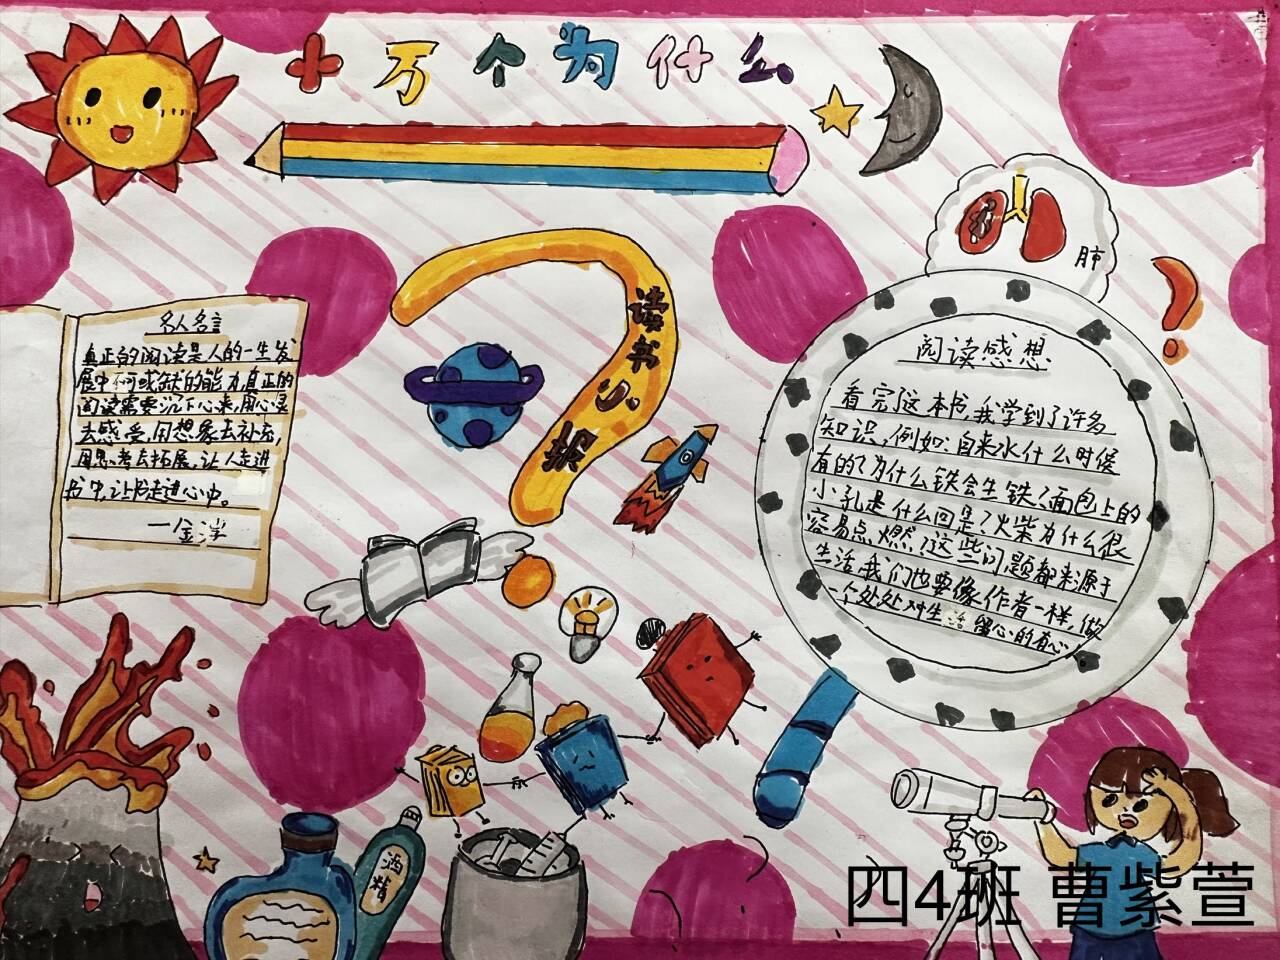 十万个为什么
肺
读书小报
名人名言
真正的阅读是人的一生发
展中何或缺的能力,真正的
阅读需要沉下心来,用心灵
去感受,用想象去补充,
用思考去拓展,让人走进
书中,让书走进心中。
一金洋
阅读感想
看完了这本书,我学到了许多
知识,例如:自来水什么时候
有的?为什么铁会生铁?面包上的
小孔是什么回是?火柴为什么很
容易点燃?这些问题都来源于
生活,我们也要像作者一样,做
一个处处对生活留心的有心人
酒精
四4班 曹紫萱